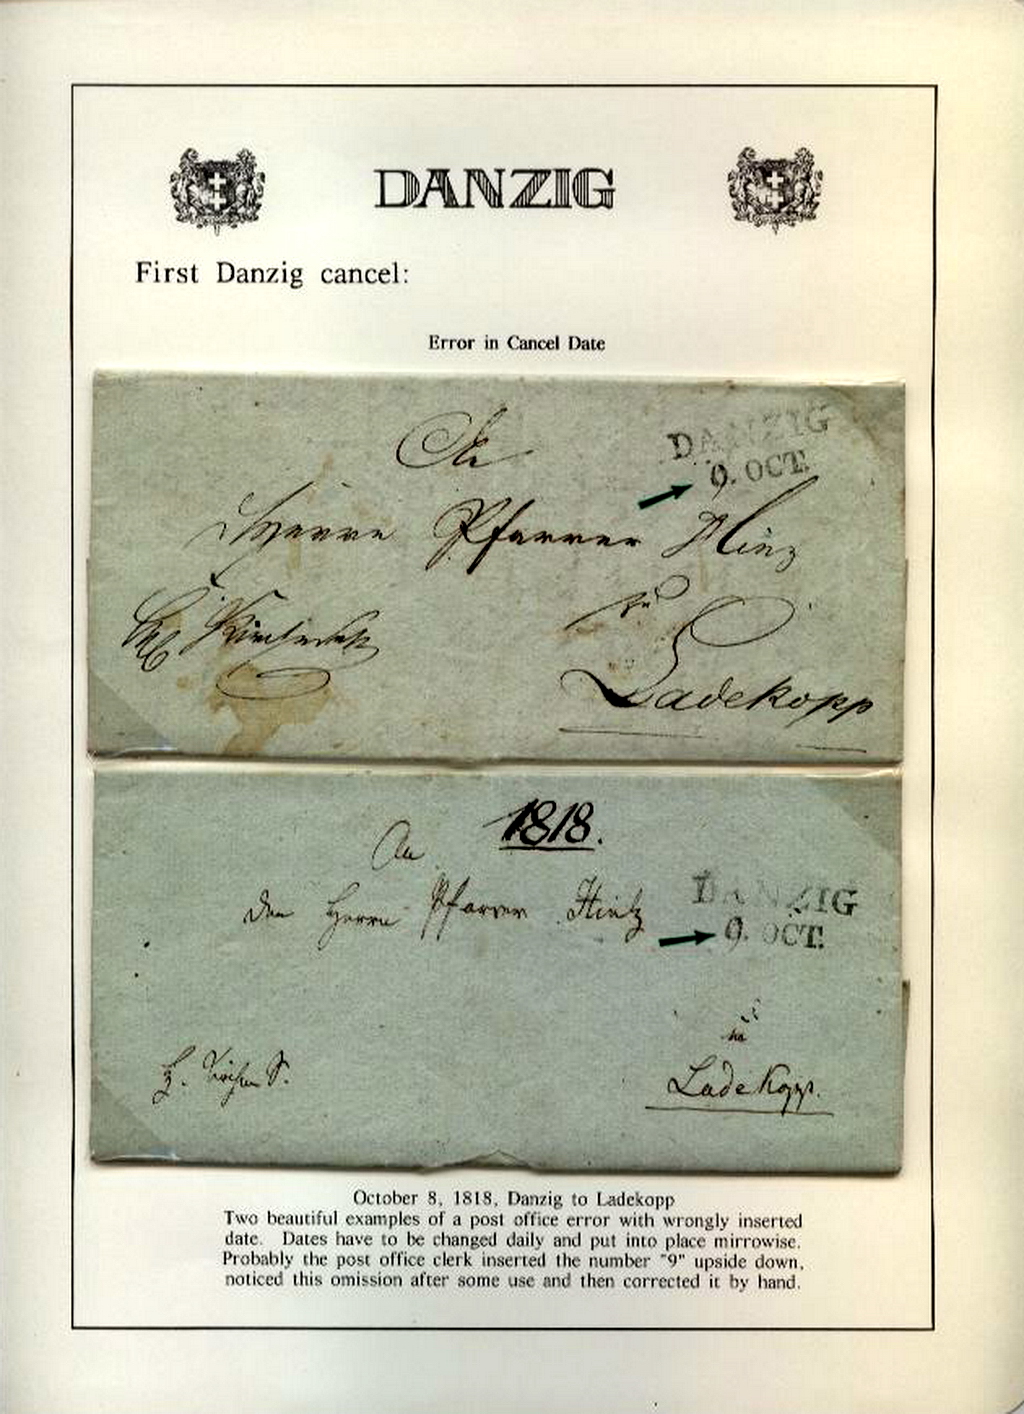 DANZIG
First Danzig cancel:
Error in Cancel Date
An
DANZIG
9. OCT.
Herrn Pfarrer Hinz
zu
Ladekopp
1818.
An
den Herrn Pfarrer Hintz
DANZIG
9. OCT.
zu
Ladekopp.
October 8, 1818, Danzig to Ladekopp
Two beautiful examples of a post office error with wrongly inserted
date. Dates have to be changed daily and put into place mirrowise.
Probably the post office clerk inserted the number "9" upside down,
noticed this omission after some use and then corrected it by hand.